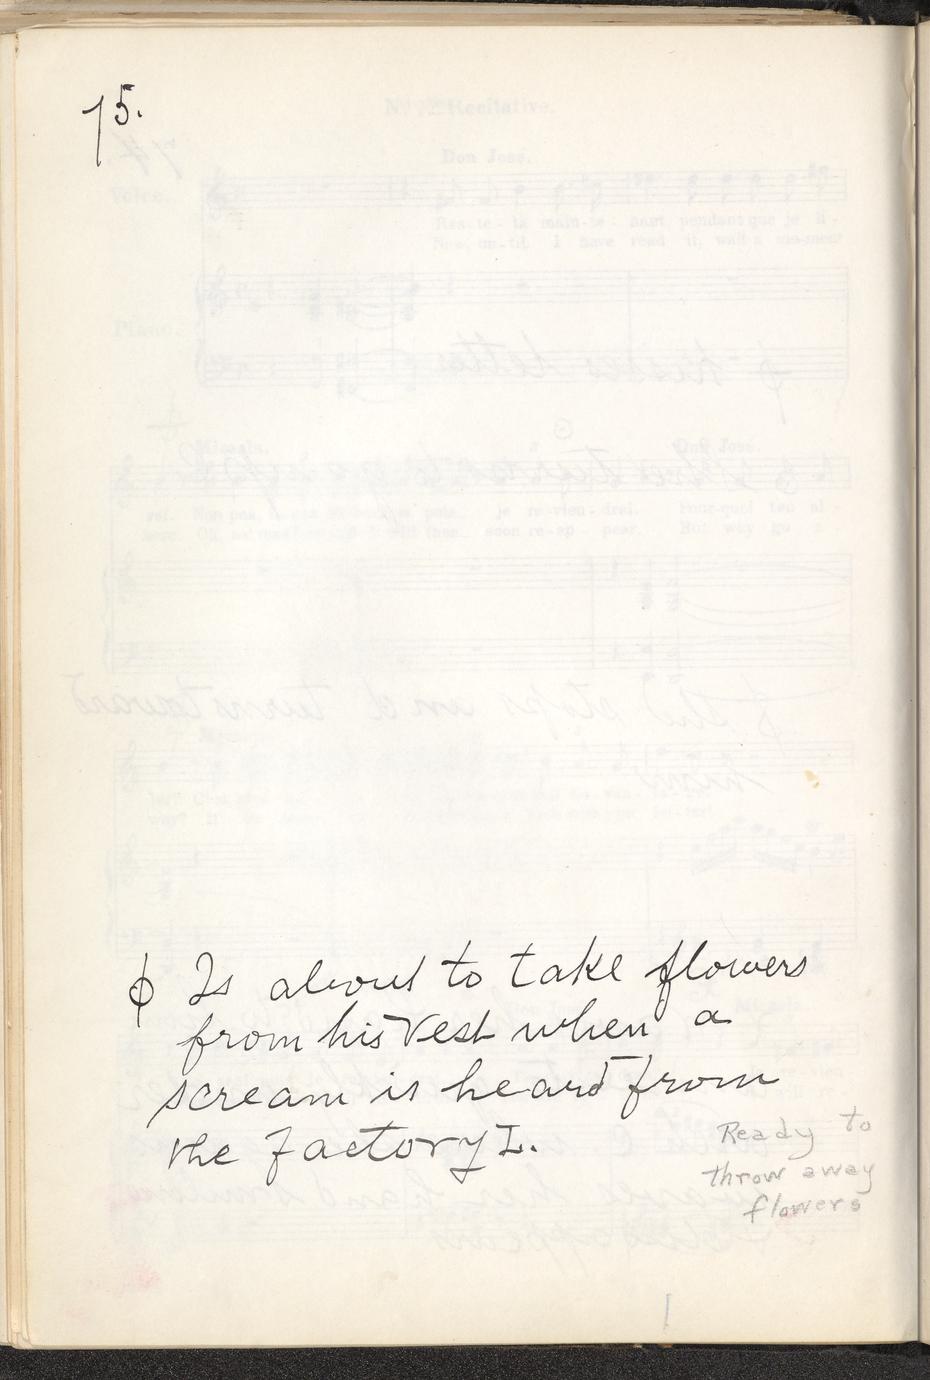 75.
ϕ Is about to take flowers
from his Vest when a
scream is heard from
the factory I.
Ready to
throw away
flowers